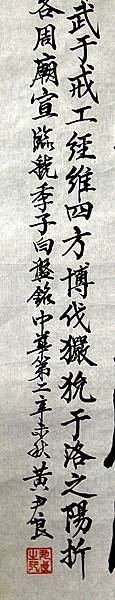 武于戎工經維四方博伐玁狁于洛之陽折
各周廟宣 臨虢季子白盤銘中華第二辛未秋黃尹良